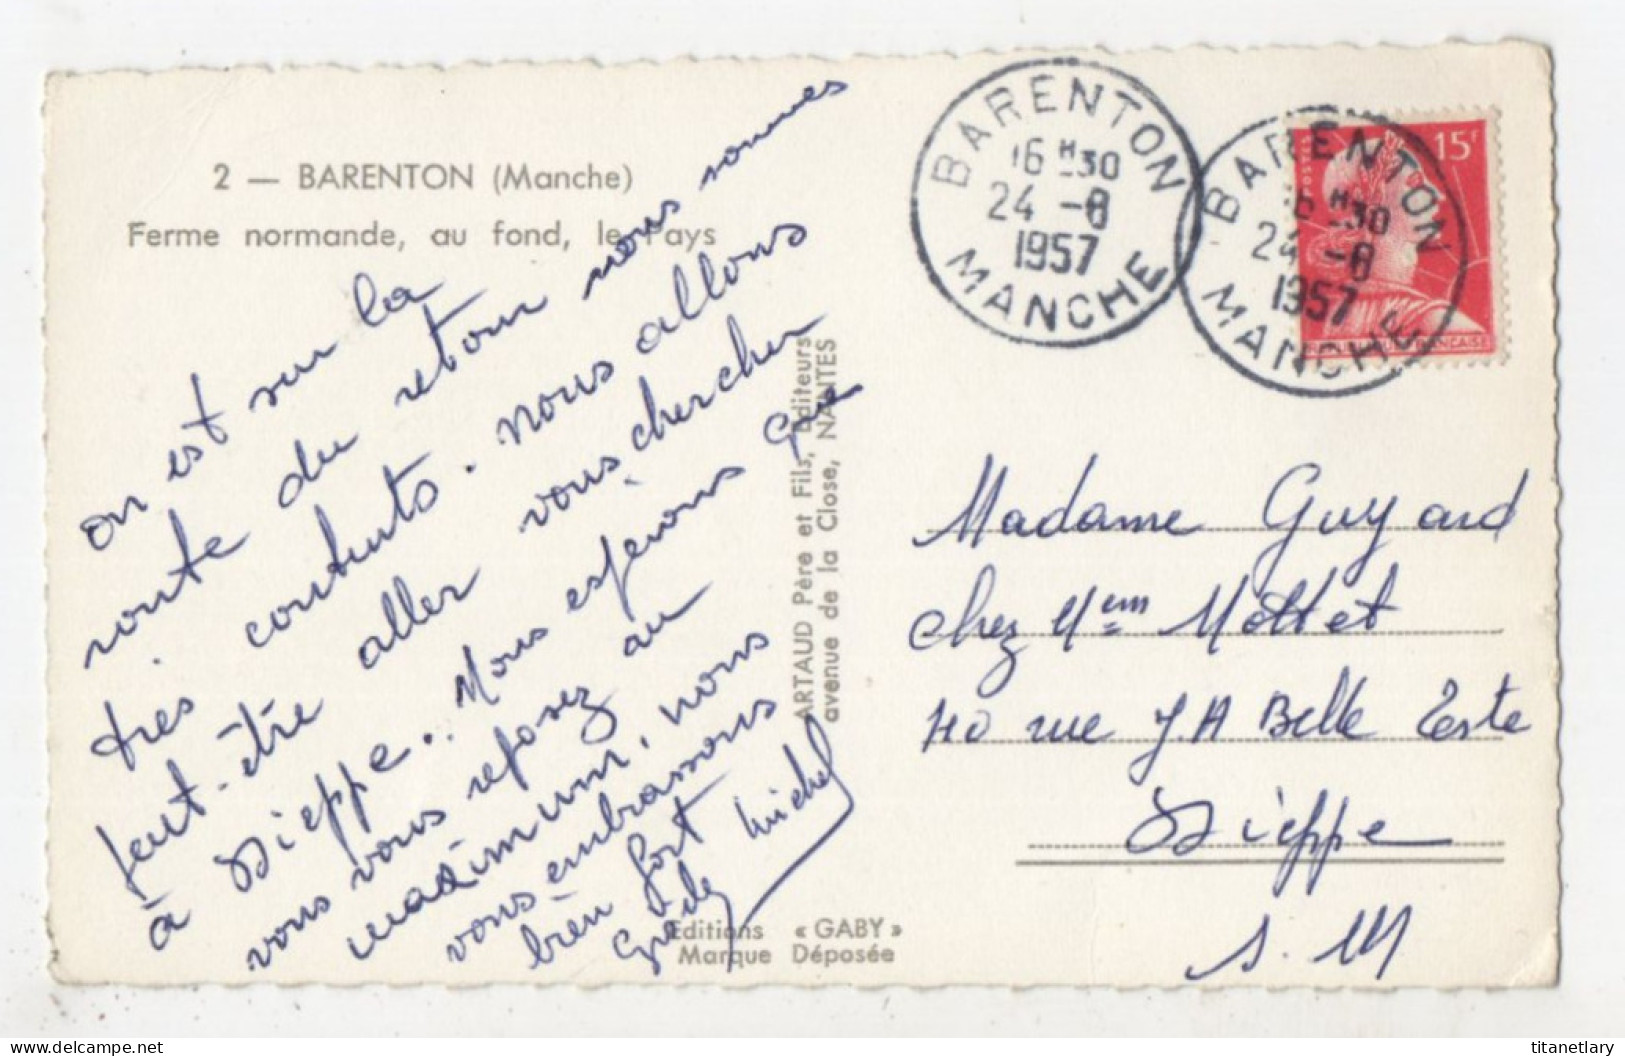 2 — BARENTON (Manche)
Ferme normande, au fond, le Pays
on est sur la
route du retour nous sommes
très contents. nous allons
peut-être aller vous chercher
à Dieppe.. Nous espérons que
vous vous reposez au
maximum, nous
vous embrassons
bien fort Michel
ARTAUD Père et Fils, Editeurs
avenue de la Close, NANTES
Editions « GABY »
Marque Déposée
BARENTON
16 H 30
24 -8
1957
MANCHE
BARENTON
16 H 30
24 -8
1957
MANCHE
POSTES
15F
Madame Guyard
chez Mem Mottet
40 rue J.A Belle Teste
Dieppe
S. M
delcampe.net
titanetlary